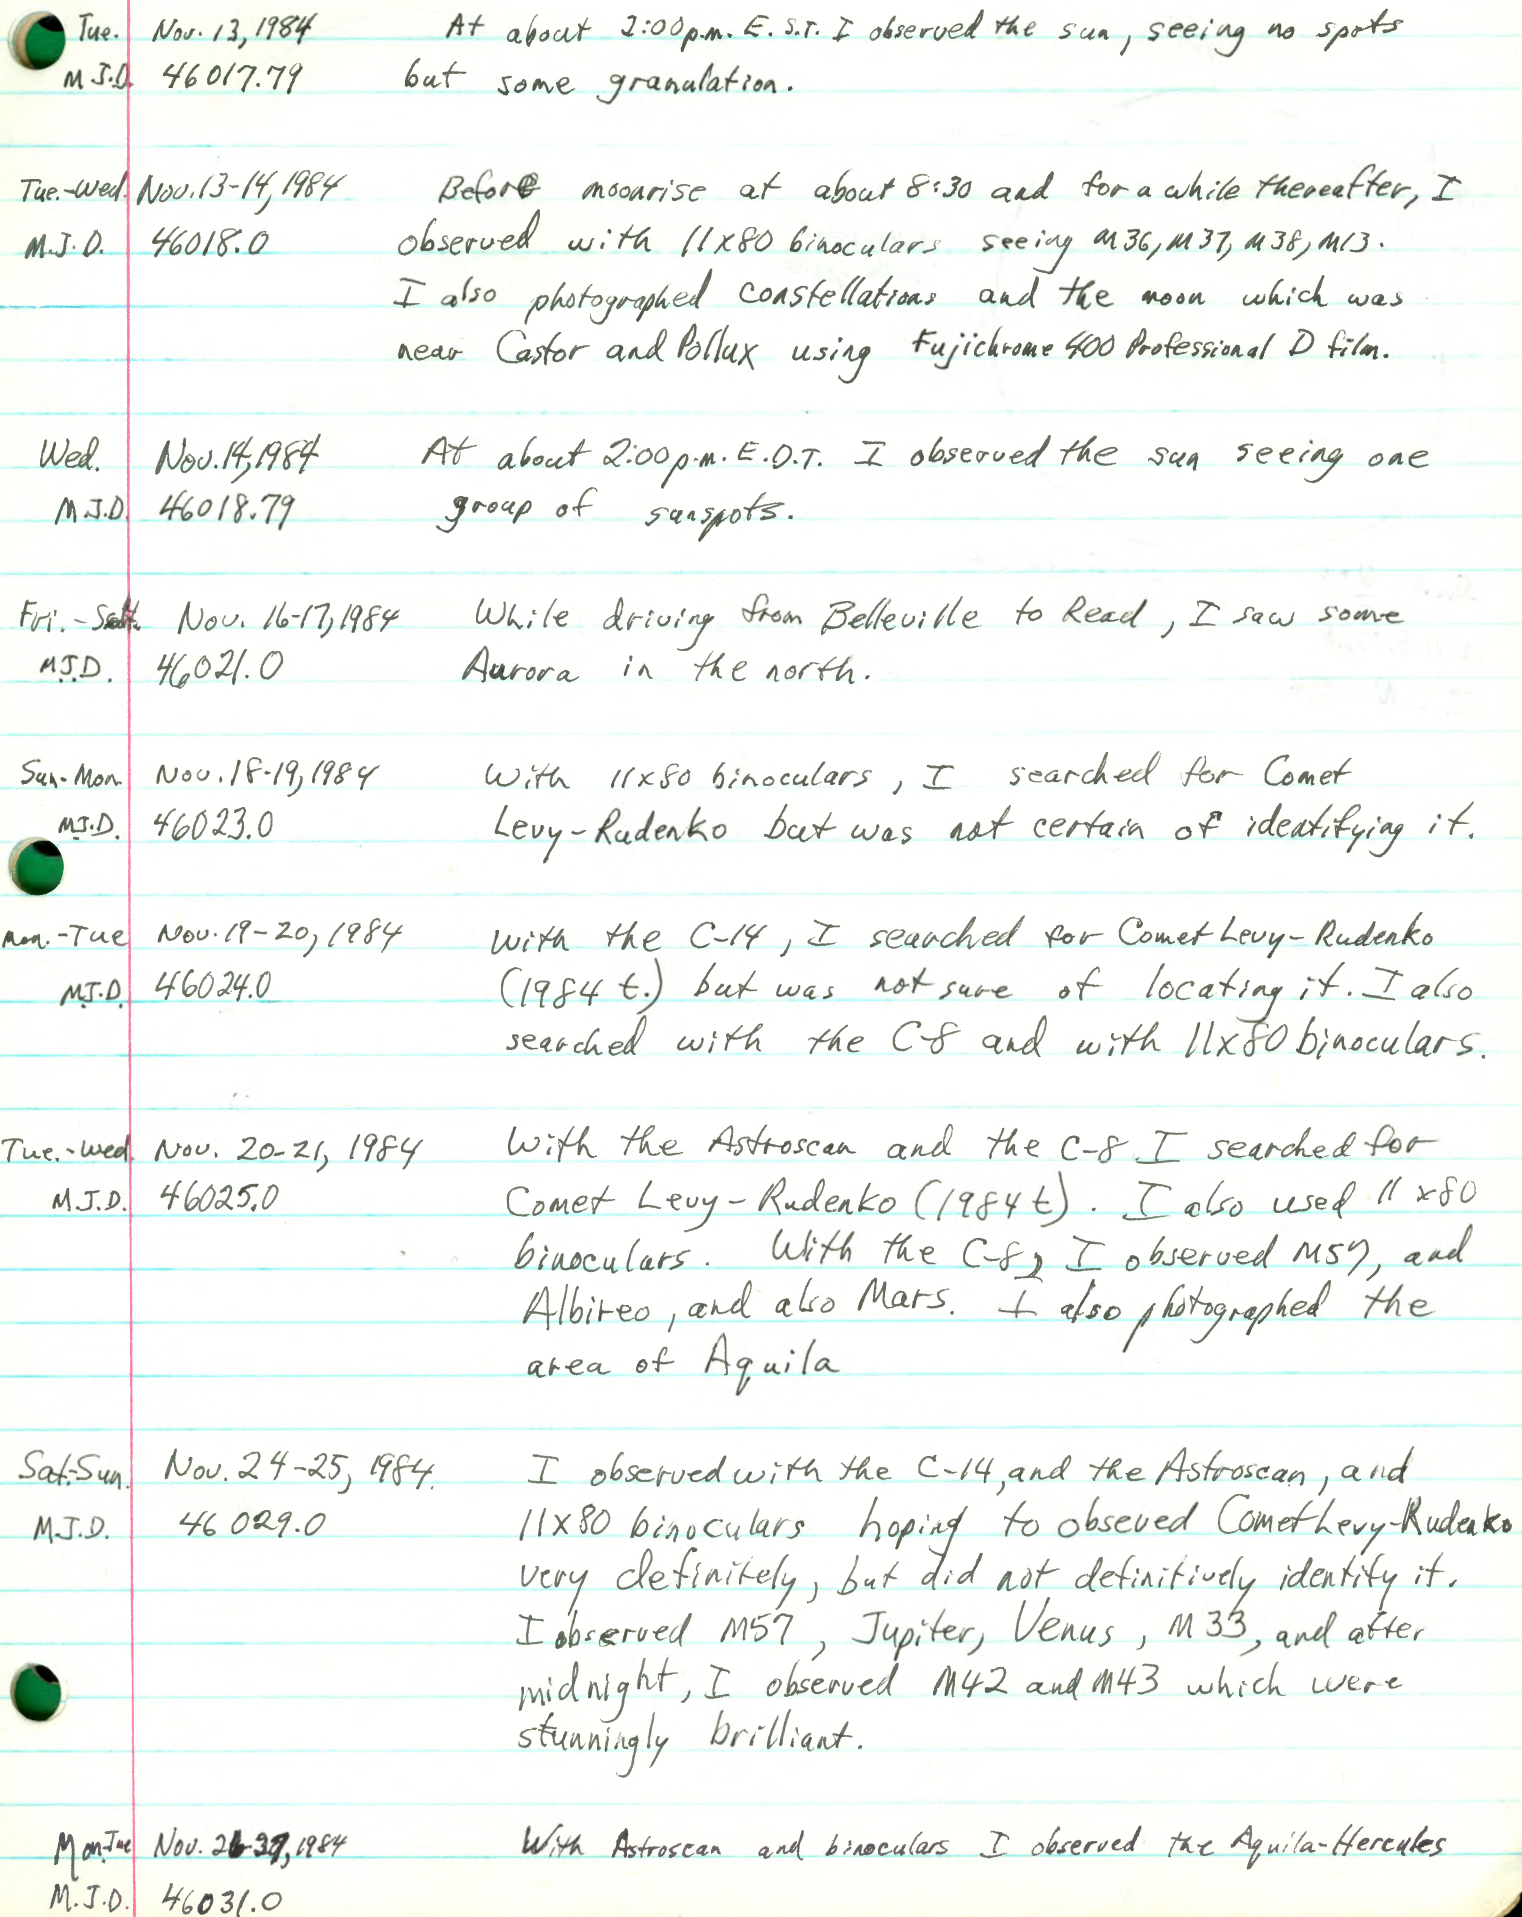 Tue. Nov. 13, 1984 At about 2:00 p.m. E.S.T. I observed the sun, seeing no spots
M.J.D. 46017.79 but some granulation.
Tue.-Wed. Nov. 13-14, 1984 Before moonrise at about 8:30 and for a while thereafter, I
M.J.D. 46018.0 observed with 11x80 binoculars seeing M36, M37, M38, M13.
I also photographed constellations and the moon which was
near Castor and Pollux using Fujichrome 400 Professional D film.
Wed. Nov. 14, 1984 At about 2:00 p.m. E.D.T. I observed the sun seeing one
M.J.D. 46018.79 group of sunspots.
Fri.-Sat. Nov. 16-17, 1984 While driving from Belleville to Read, I saw some
M.J.D. 46021.0 Aurora in the north.
Sun-Mon. Nov. 18-19, 1984 With 11x80 binoculars, I searched for Comet
M.J.D. 46023.0 Levy-Rudenko but was not certain of identifying it.
Mon.-Tue Nov. 19-20, 1984 With the C-14, I searched for Comet Levy-Rudenko
M.J.D. 46024.0 (1984 t.) but was not sure of locating it. I also
searched with the C-8 and with 11x80 binoculars.
Tue.-Wed. Nov. 20-21, 1984 With the Astroscan and the C-8 I searched for
M.J.D. 46025.0 Comet Levy-Rudenko (1984 t). I also used 11x80
binoculars. With the C-8, I observed M57, and
Albireo, and also Mars. I also photographed the
area of Aquila
Sat.-Sun. Nov. 24-25, 1984. I observed with the C-14, and the Astroscan, and
M.J.D. 46029.0 11x80 binoculars hoping to obseved Comet Levy-Rudenko
very definitely, but did not definitively identify it.
I observed M57, Jupiter, Venus, M33, and after
midnight, I observed M42 and M43 which were
stunningly brilliant.
Mon-Tue Nov. 26-27, 1984 With Astroscan and binoculars I observed the Aquila-Hercules
M.J.D. 46031.0